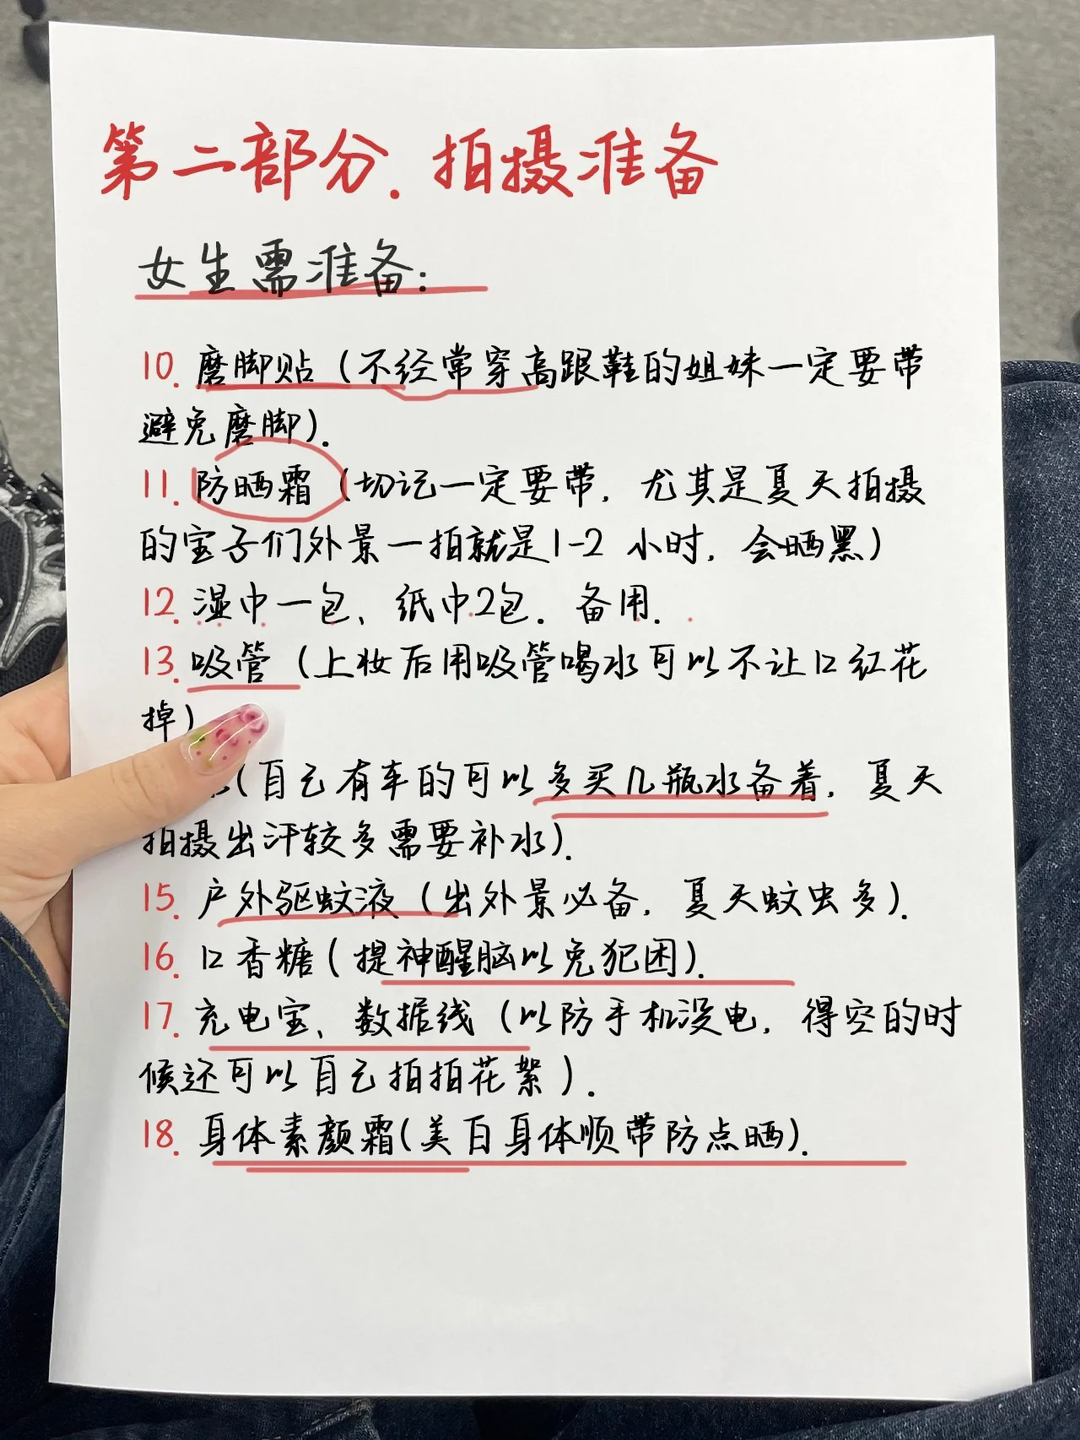 第二部分.拍摄准备
女生需准备:
10.磨脚贴(不经常穿高跟鞋的姐妹一定要带
避免磨脚).
11.防晒霜(切记一定要带,尤其是夏天拍摄
的宝子们外景一拍就是1-2小时,会晒黑)
12.湿巾一包、纸巾2包.备用.
13.吸管(上妆后用吸管喝水可以不让口红花
掉)
(自己有车的可以多买几瓶水备着,夏天
拍摄出汗较多需要补水).
15.户外驱蚊液(出外景必备,夏天蚊虫多).
16.口香糖(提神醒脑以免犯困).
17.充电宝、数据线(以防手机没电,得空的时
候还可以自己拍拍花絮).
18.身体素颜霜(美白身体顺带防点晒).